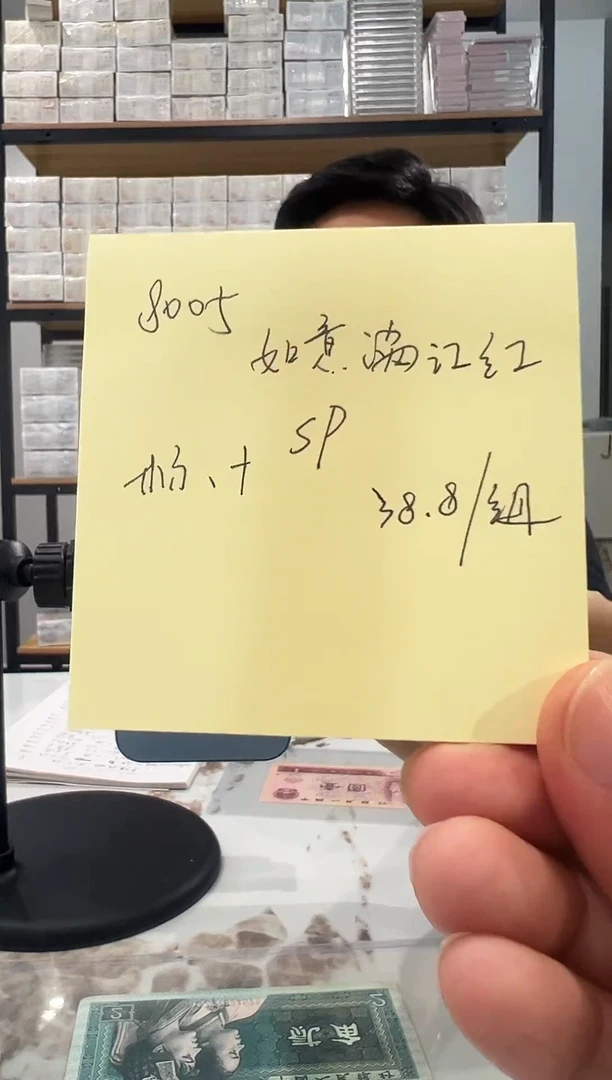 8005
如意满江红
SP
标、十
38.8/组
贰角